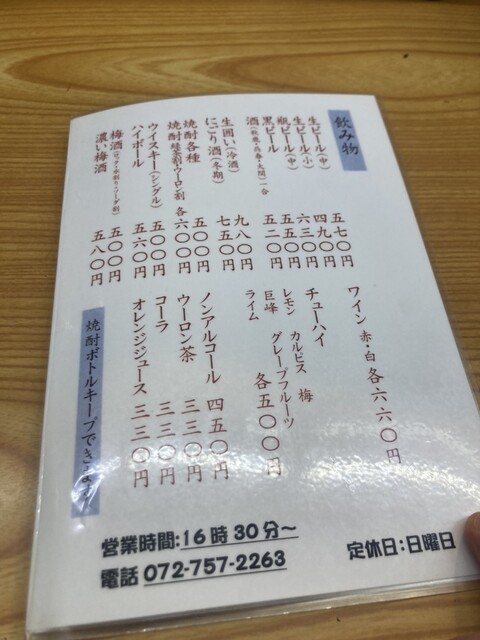 飲み物
生ビール(中) 五七〇円
生ビール(小) 四九〇円
瓶ビール(中) 六三〇円
黒ビール 五五〇円
酒(秋鹿・呉春・大関)一合 五二〇円
生囲い(冷酒) 九八〇円
にごり酒(冬期) 七五〇円
焼酎各種 五〇〇円
焼酎緑茶割・ウーロン割 各六〇〇円
ウイスキー(シングル) 五〇〇円
ハイボール 五六〇円
梅酒(ロック・水割り・ソーダ割) 五〇〇円
濃い梅酒 五八〇円
ワイン 赤・白 各六六〇円
チューハイ 梅
レモン カルピス
巨峰 グレープフルーツ
ライム 各五〇〇円
ノンアルコール 四五〇円
ウーロン茶 三三〇円
コーラ 三三〇円
オレンジジュース 三三〇円
焼酎ボトルキープできます
営業時間:16時30分~
電話 072-757-2263
定休日:日曜日